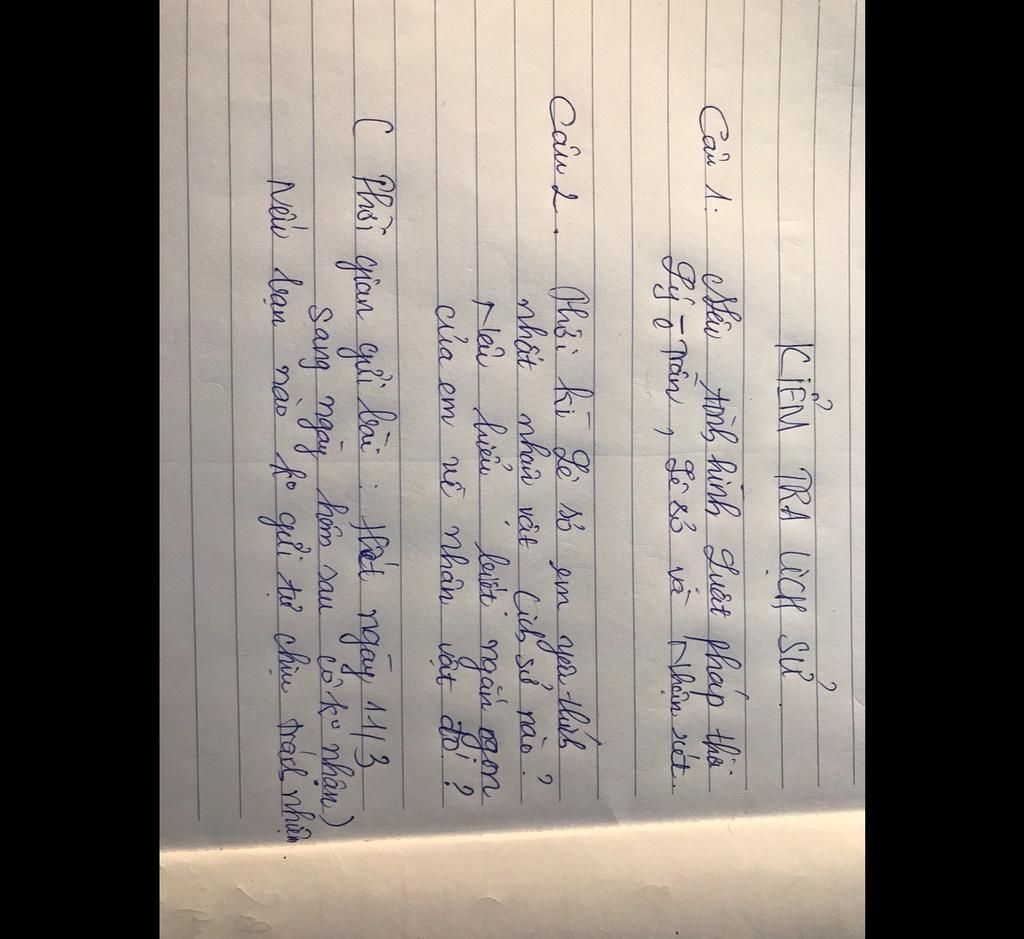 KIỂM TRA LỊCH SỬ
Câu 1: Nêu tình hình Luật pháp thời
Lý - Trần, Lê sơ và Nhận xét.
Câu 2. Thời kì Lê sơ em yêu thích
nhất nhân vật lịch sử nào?
Nêu hiểu biết ngắn gọn
của em về nhân vật đó!?
( Thời gian gửi bài: Hết ngày 11/3
sang ngày hôm sau cô ko nhận)
Nếu bạn nào ko gửi tự chịu trách nhiệm